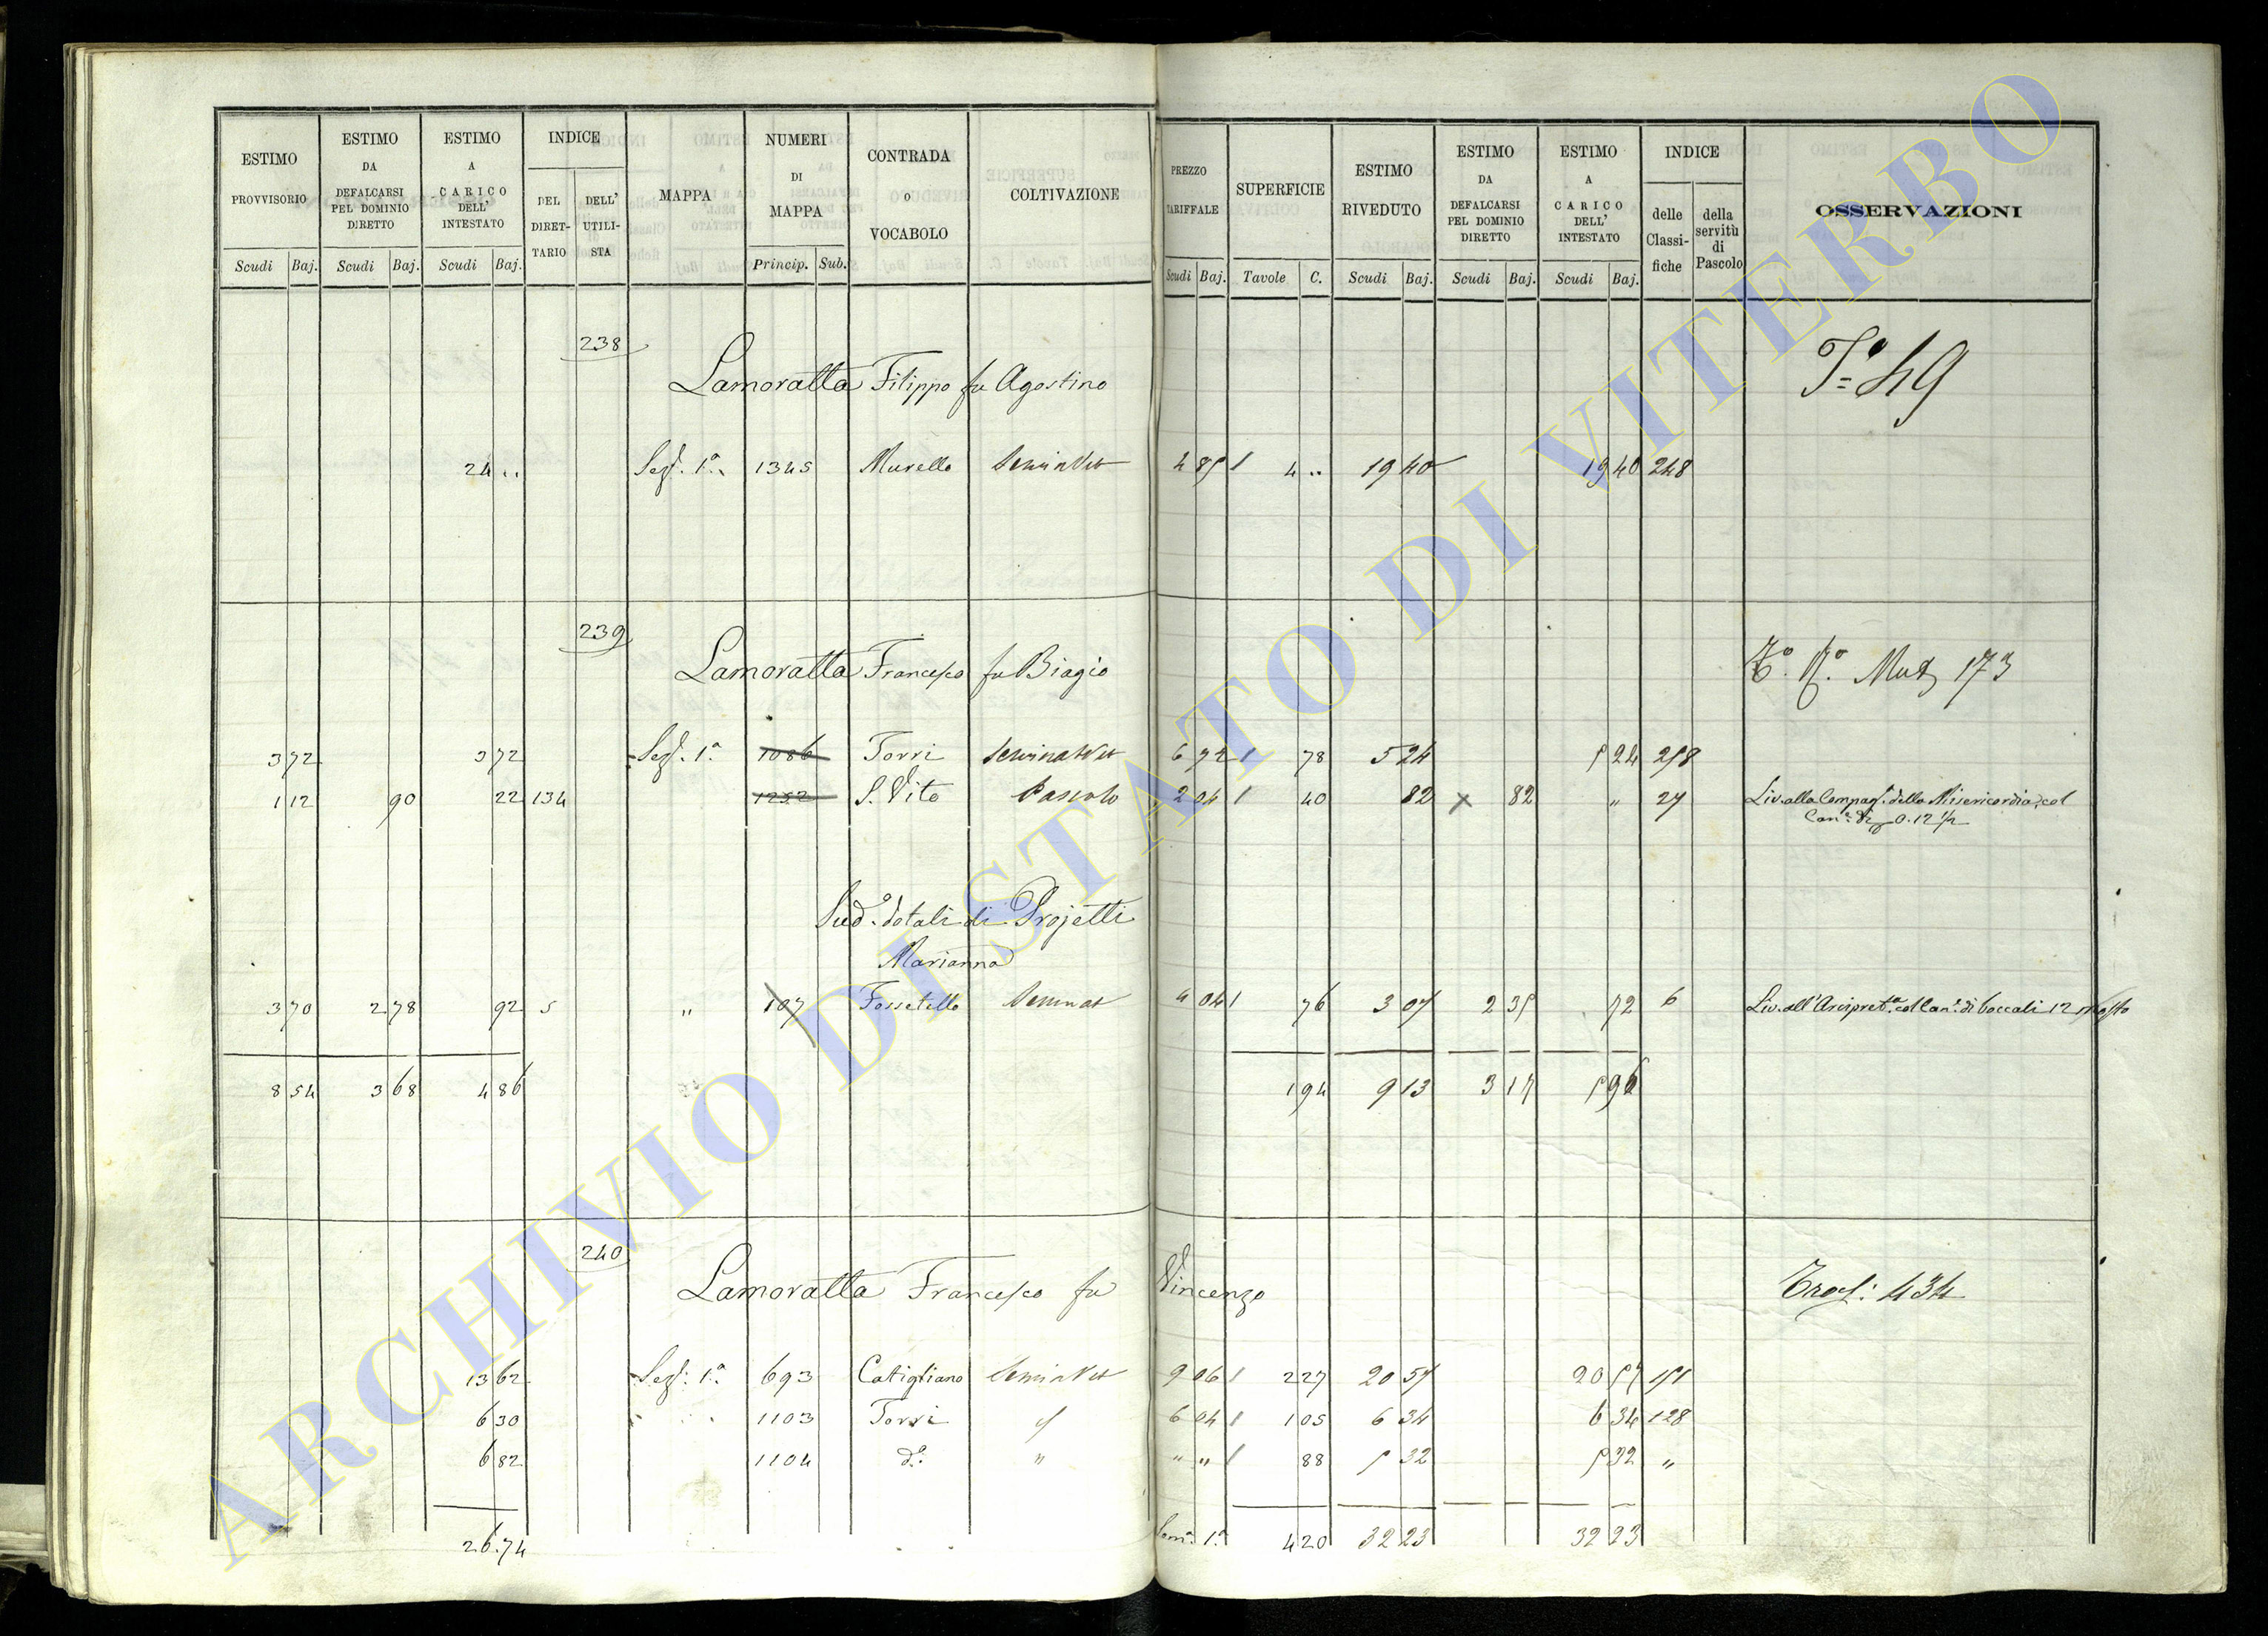 ESTIMO PROVVISORIO
Scudi Baj.
ESTIMO DA DEFALCARSI PEL DOMINIO DIRETTO
Scudi Baj.
ESTIMO A CARICO DELL' INTESTATO
Scudi Baj.
INDICE
DEL DIRET-TARIO
DELL' UTILI-STA
MAPPA
NUMERI DI MAPPA
Princip. Sub.
CONTRADA o VOCABOLO
COLTIVAZIONE
PREZZO TARIFFALE
Scudi Baj.
SUPERFICIE
Tavole C.
ESTIMO RIVEDUTO
Scudi Baj.
ESTIMO DA DEFALCARSI PEL DOMINIO DIRETTO
Scudi Baj.
ESTIMO A CARICO DELL' INTESTATO
Scudi Baj.
INDICE
delle Classi-fiche
della servitù di Pascolo
OSSERVAZIONI
238
Lamoratta Filippo fu Agostino
24 ..
Sez. 1a 1345 Murello SeminVit
4 85 1 4 .. 19 40 19 40 248
239
Lamoratta Francesco fu Biagio
Mut 173
3 72 3 72 Sez. 1a 1086 Torri SeminatVit 6 72 1 78 5 24 5 24 258
1 12 90 22 134 1252 S. Vito Pascolo 2 04 1 40 82 x 82 " 27 Liv. alla Compag. della Misericordia col
Can. di 0.12 1/2
Sud.o dotali di Projetti
Marianna
3 70 2 78 92 5 " 107 Fossetello Seminat 4 04 1 76 3 07 2 35 72 6 Liv. all'Arcipret.a col Can. di boccali 12 mosto
8 54 3 68 4 86 1 94 9 13 3 17 5 96
240
Lamoratta Francesco fu Vincenzo
434
13 62 Sez. 1a 693 Catigliano SeminVit 9 06 1 2 27 20 57 20 57 151
6 30 1103 Torri 6 04 1 1 05 6 34 6 34 128
6 82 1104 do. " " " 1 88 5 32 5 32 "
26.74 4 20 32 23 32 23
ARCHIVIO DI STATO DI VITERBO